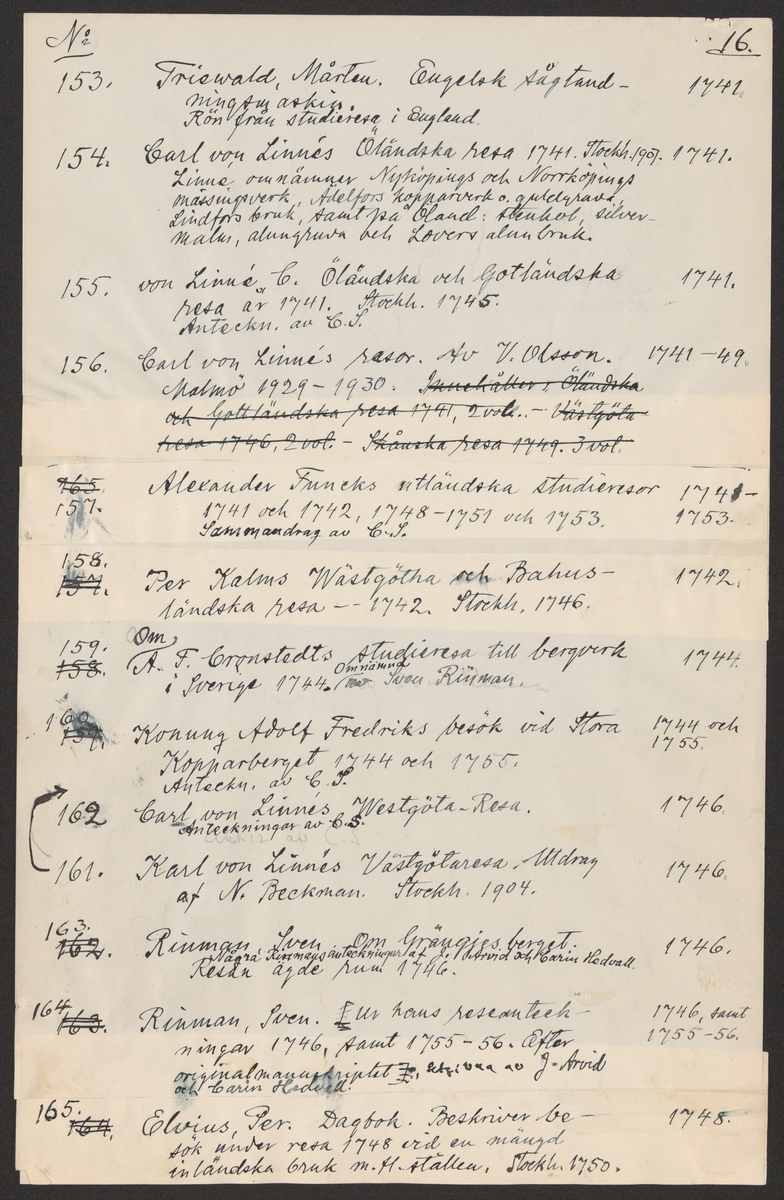 No 16.
153. Triewald, Mårten. Engelsk sågtand- 1741.
ningsmaskin.
Rön från studieresa i England.
154. Carl von Linnés Öländska resa 1741. Stockh. 1907. 1741.
Linné omnämner Nyköpings och Norrköpings
mässingsverk, Ädelfors kopparverk o. guldgruva,
Lindfors bruk, samt på Öland: stenkol, silver-
malm, alungruva och Lovers alunbruk.
155. von Linné, C. Öländska och Gotländska 1741.
resa år 1741. Stockh. 1745.
Anteckn. av C.S.
156. Carl von Linnés resor. Av V. Olsson. 1741-49.
Malmö 1929-1930. Innehåller: Öländska
och Gottländska resa 1741, 2 vol. - Västgöta
resa 1746, 2 vol. - Skånska resa 1749. 3 vol.
165. Alexander Funcks utländska studieresor 1741-
157. 1741 och 1742, 1748-1751 och 1753. 1753.
Sammandrag av C.S.
158.
157. Per Kalms Wästgötha och Bahus- 1742.
ländska resa -- 1742. Stockh. 1746.
159. Om
158. A. F. Cronstedts studieresa till bergverk 1744.
i Sverige 1744. Omnämnd av Sven Rinman.
160
159. Konung Adolf Fredriks besök vid Stora 1744 och
Kopparberget 1744 och 1755. 1755.
Anteckn. av C.S.
162 Carl von Linnés Westgöta-Resa. 1746.
Anteckningar av C.S.
161. Karl von Linnés Västgötaresa. Utdrag 1746.
af N. Beckman. Stockh. 1904.
163.
162. Rinman, Sven. Om Grängjes berget. 1746.
Några Rinmans anteckningar af J. Arvid och Carin Hedvall.
Resan ägde rum 1746.
164
163. Rinman, Sven. Ur hans reseanteck- 1746, samt
ningar 1746, samt 1755-56. Efter 1755-56.
originalmanuskriptet, utgivna av J. Arvid
och Carin Hedvall.
165.
164. Elvius, Per. Dagbok. Beskriver be- 1748.
sök under resa 1748 vid en mängd
inländska bruk m. fl. ställen. Stockh. 1750.